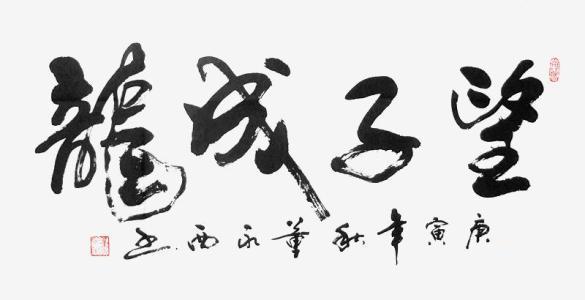 望子成龍
庚寅年秋董永西书